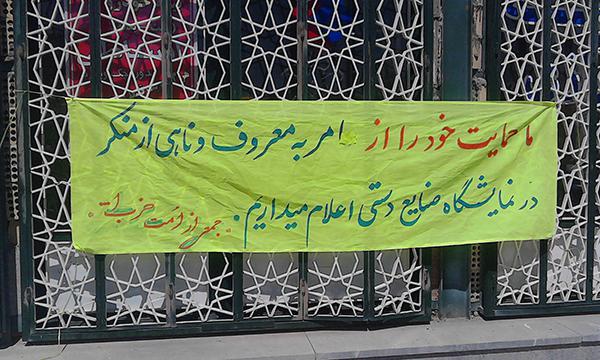 ما حمایت خود را از امر به معروف و ناهی از منکر
در نمایشگاه صنایع دستی اعلام میداریم.
جمعی از امت حزب الله